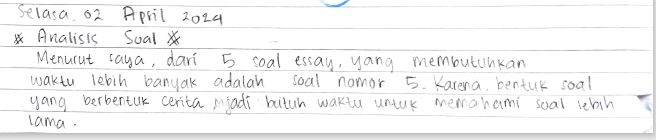 Selasa, 02 April 2024
* Analisis Soal *
Menurut saya, dari 5 soal essay, yang membutuhkan
waktu lebih banyak adalah soal nomor 5. Karena, bentuk soal
yang berbentuk cerita mjadi butuh waktu untuk memahami soal lebih
lama.